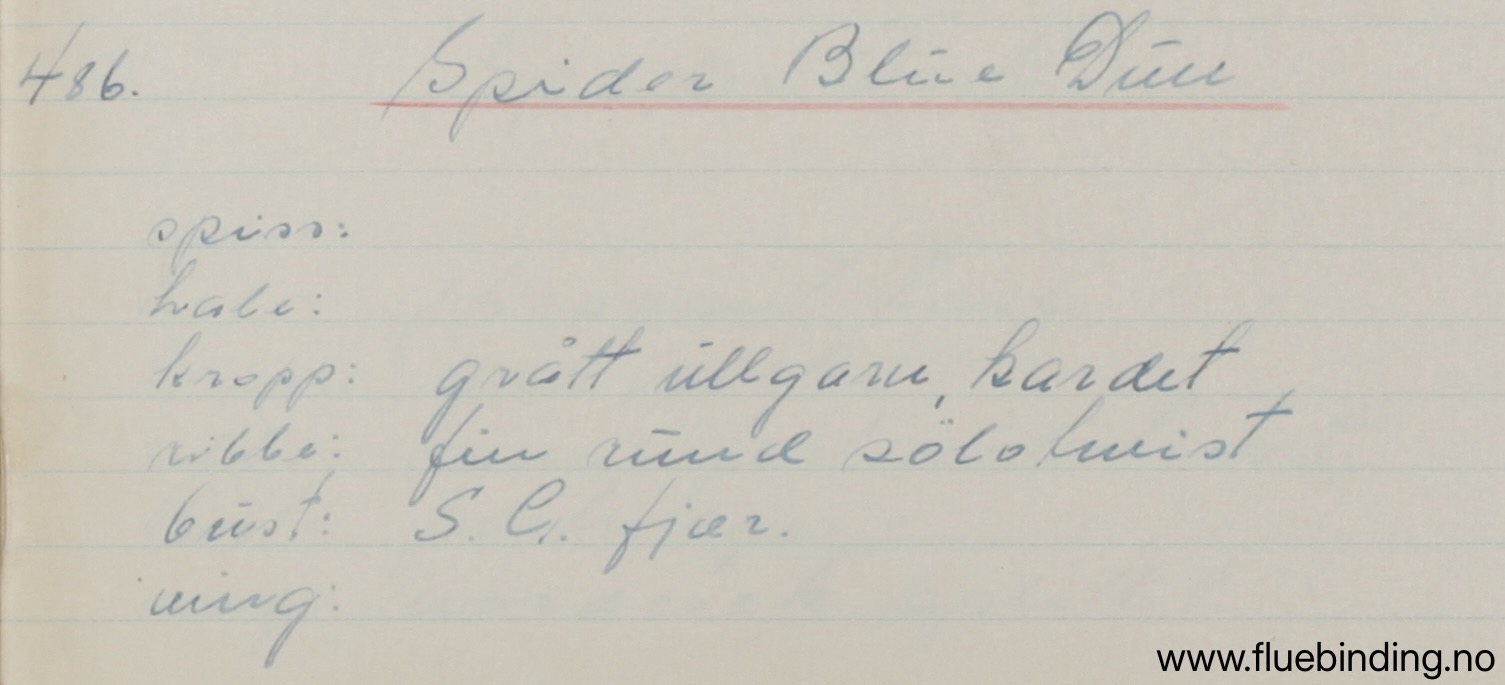 486. Spider Blue Dun
spiss:
hale:
kropp: grått ullgarn, kardet
ribbe: fin rund sölvtwist
büst: S. G. fjær.
ving:
www.fluebinding.no